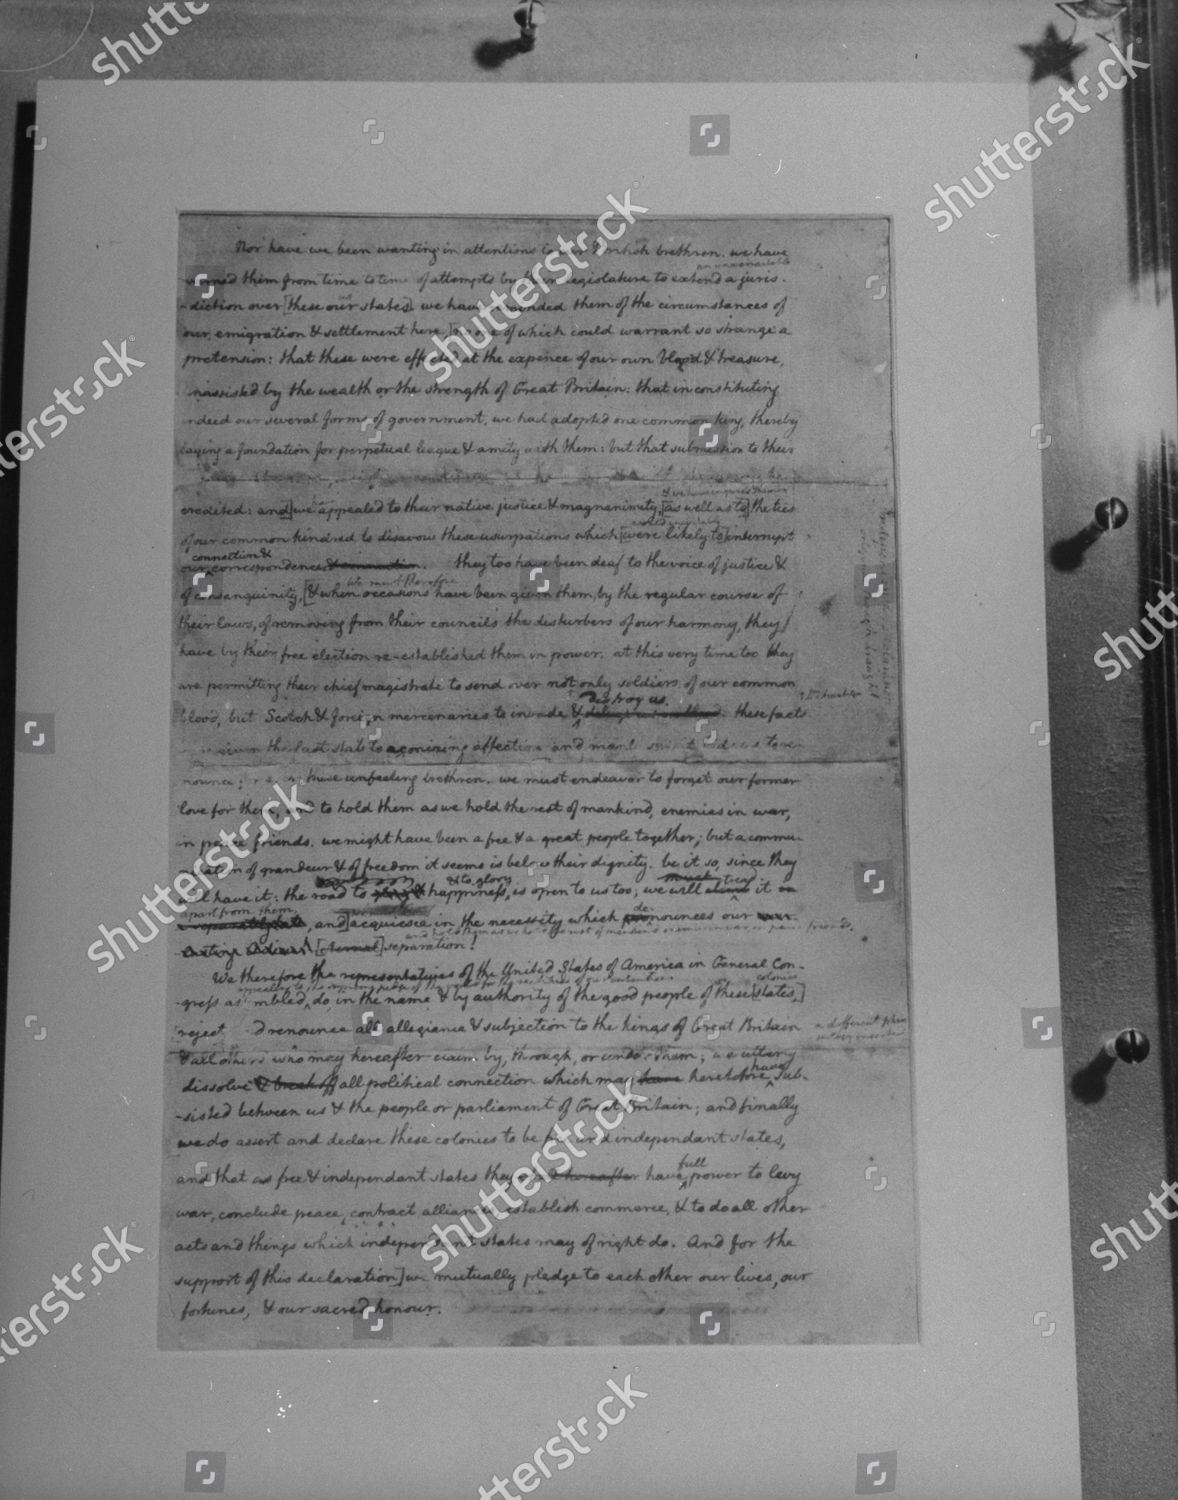 Nor have we been wanting in attentions to our British brethren. we have
an unwarrantable
warned them from time to time of attempts by their legislature to extend a juris-
-diction over [these our states]. we have reminded them of the circumstances of
our emigration & settlement here, [no one of which could warrant so strange a
pretension: that these were effected at the expence of our own blood & treasure,
unassisted by the wealth or the strength of Great Britain: that in constituting
indeed our several forms of government, we had adopted one common king, thereby
laying a foundation for perpetual league & amity with them: but that submission to their
credited: and] we have appealed to their native justice & magnanimity, [as well as to] the ties
of our common kindred to disavow these usurpations which [were likely to] interrupt
connection &
our correspondence & connection. they too have been deaf to the voice of justice &
we must therefore
of consanguinity, [& when occasions have been given them, by the regular course of
their laws, of removing from their councils the disturbers of our harmony, they
have by their free election re-established them in power. at this very time too they
are permitting their chief magistrate to send over not only soldiers of our common
destroy us.
blood, but Scotch & foreign mercenaries to invade & deluge us in blood. these facts
given the last stab to agonizing affection and manly spirit bids us to re-
nounce for ever these unfeeling brethren. we must endeavor to forget our former
love for them, and to hold them as we hold the rest of mankind, enemies in war,
in peace friends. we might have been a free & a great people together; but a commu-
nication of grandeur & of freedom it seems is below their dignity. be it so, since they
& to glory
will have it: the road to glory & happiness, is open to us too; we will climb it
apart from them
separately, and] acquiesce in the necessity which denounces our
[eternal] separation!
We therefore the representatives of the United States of America in General Con-
colonies
-gress assembled, do, in the name & by authority of the good people of these [states,]
reject and renounce all allegiance & subjection to the kings of Great Britain
& all others who may hereafter claim by, through, or under them; we utterly
have
dissolve & break off all political connection which may have heretofore sub-
-sisted between us & the people or parliament of Great Britain; and finally
we do assert and declare these colonies to be free and independant states,
full
and that as free & independant states they shall hereafter have power to levy
war, conclude peace, contract alliances, establish commerce, & to do all other
acts and things which independent states may of right do. And for the
support of this declaration] we mutually pledge to each other our lives, our
fortunes, & our sacred honour.
shutterstock